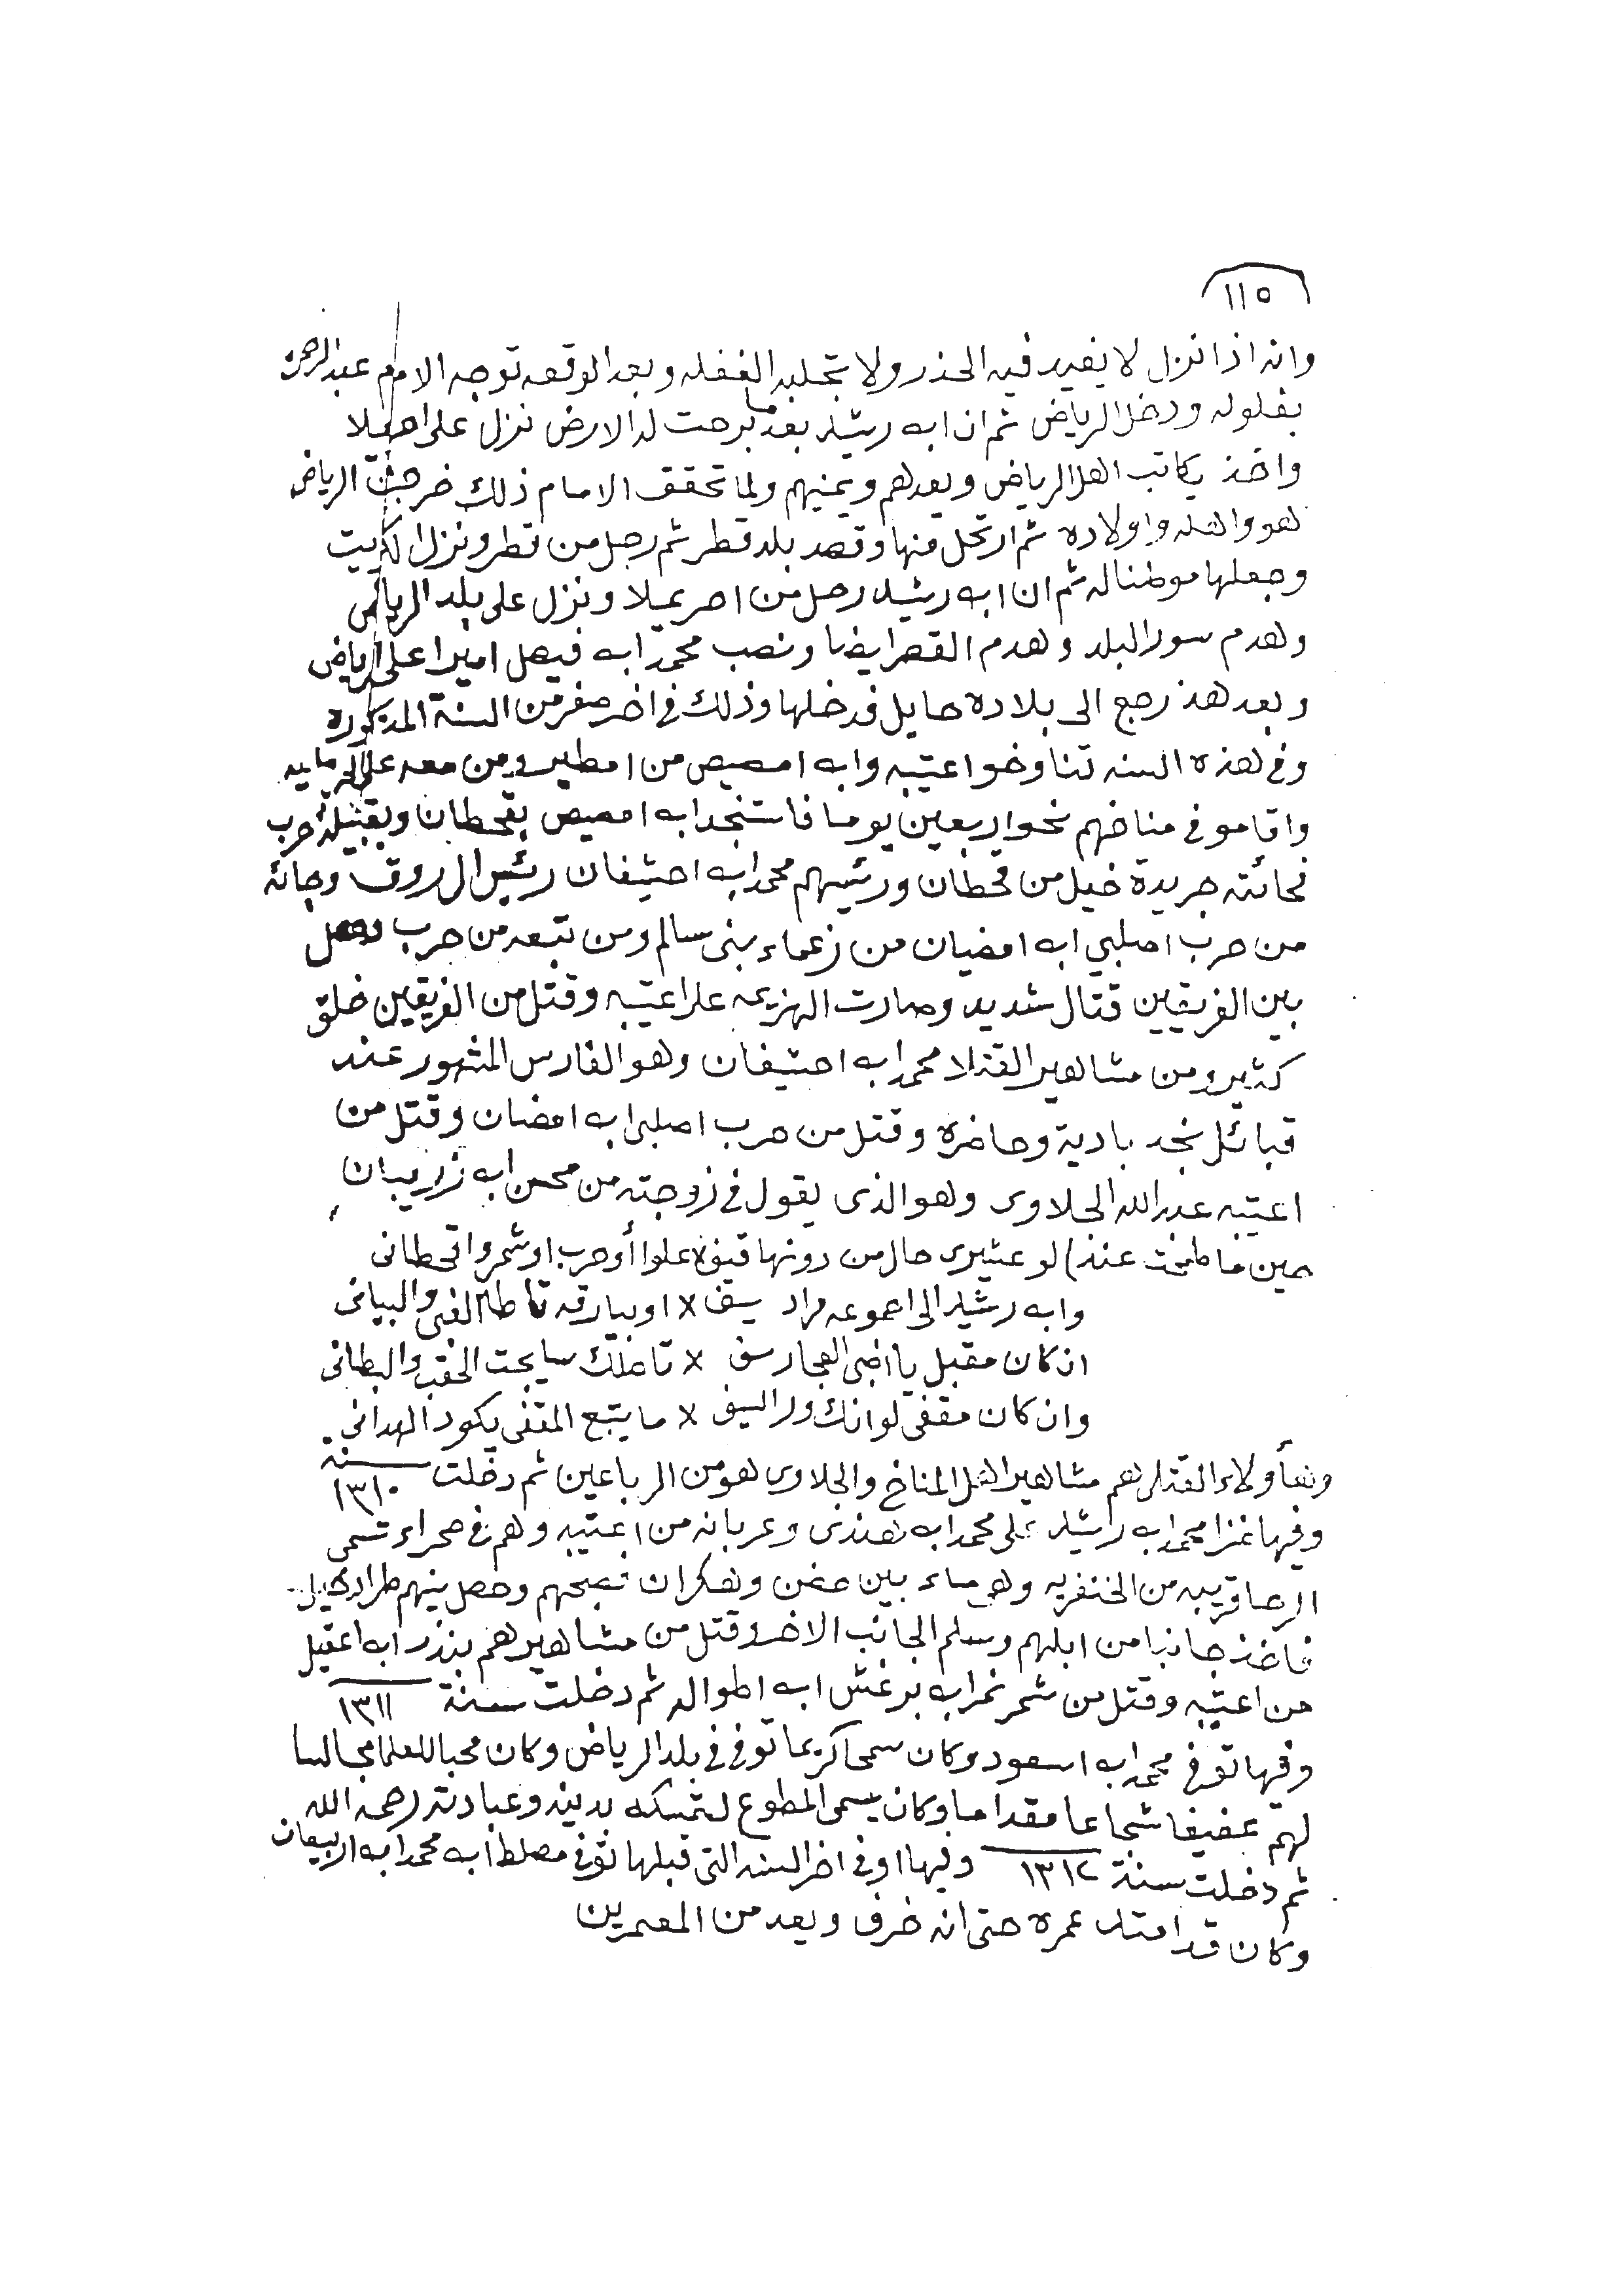 ١١٥
وانه اذا نزل لا يفيد فيه الحذر ولا تجلبه الغفله وبعد الوقعه توجه الامام عبد الرحمن
بفلوله ودخل الرياض ثم ان ابه رشيد بعد ما برحت له الارض نزل على احريملا
واخذ يكاتب اهل الرياض ويعدهم ويمنيهم ولما تحقق الامام ذلك خرج من الرياض
هو واهله واولاده ثم ارتحل منها وقصد بلد قطر ثم رحل من قطر ونزل الكويت
وجعلها موطنا له ثم ان ابه رشيد رحل من احريملا ونزل على بلد الرياض
وهدم سور البلد وهدم القصر ايضا ونصب محمد ابه فيصل اميرا على الرياض
وبعد هذ رجع الى بلاده حايل فدخلها وذلك في اخر صفر من السنة المذكوره
وفي هذه السنه تناوخو اعتيبه وابه امصيص من امطير ومن معه على
واقامو في مناخهم نحو اربعين يوما فاستنجد ابه امصيص بقحطان وبقبيلة حرب
فجائته جريدة خيل من قحطان ورئيسهم محمد ابه احشيفان رئيس ال روق وجائه
من حرب اصلبي ابه امضيان من زعماء بنى سالم ومن تبعه من حرب وحصل
بين الفريقين قتال شديد وصارت الهزيمه على اعتيبه وقتل من الفريقين خلق
كثير ومن مشاهير القتلا محمد ابه احشيفان وهو الفارس المشهور عند
قبائل نجد بادية وحاضره وقتل من حرب اصلبي ابه امضان وقتل من
اعتيبه عبد الله الجلاوى وهو الذى يقول في زوجته من محسن ابه زريبان
حين ما طمحت عنه) لو عشيرى حال من دونها قيف لا علوا أو حرب او شمر واقحطانى
وابه رشيد الى اعموعه مراد يسف لا او بيارقه تاطا الفى والبيانى
ان كان مقبل يا اضى العجارسف لا تاصلك سايجت الحقب والبطانى
وان كان مقفى لوانك ور السيف لا ما يتبع المقفى يكود الهدانى
وهأولاء القتلى هم مشاهير اهل المناخ والجلاوى هو من الرباعين ثم دخلت سنة ١٣١٠
وفيها غزا محمد ابه راشيد على محمد ابه هندى وعربانه من اعتيبه وهم في صحراء تسمى
الرحا قريبه من الخنفريه وهو ماء بين عفن وهكران فصبحهم وحصل بينهم طراد خيل
فاخذ جانبا من ابلهم وسلم الجانب الاخر وقتل من مشاهيرهم بندر ابه اعقيل
من اعتيبه وقتل من شمر نمر ابه برغش ابه اطواله ثم دخلت سنة ١٣١١
وفيها توفي محمد ابه اسعود وكان سمحا كريما توفي في بلد الرياض وكان محبا للعلما مجالسا
لهم عفيفا شجاعا مقداما وكان يسمى المطوع لتمسكه بدينه وعبادته رحمه الله
ثم دخلت سنة ١٣١٢ وفيها او في اخر السنه التى قبلها توفي مصلط ابه محمد ابه اربيعان
وكان قد امتد عمره حتى انه خرف ويعد من المعمرين